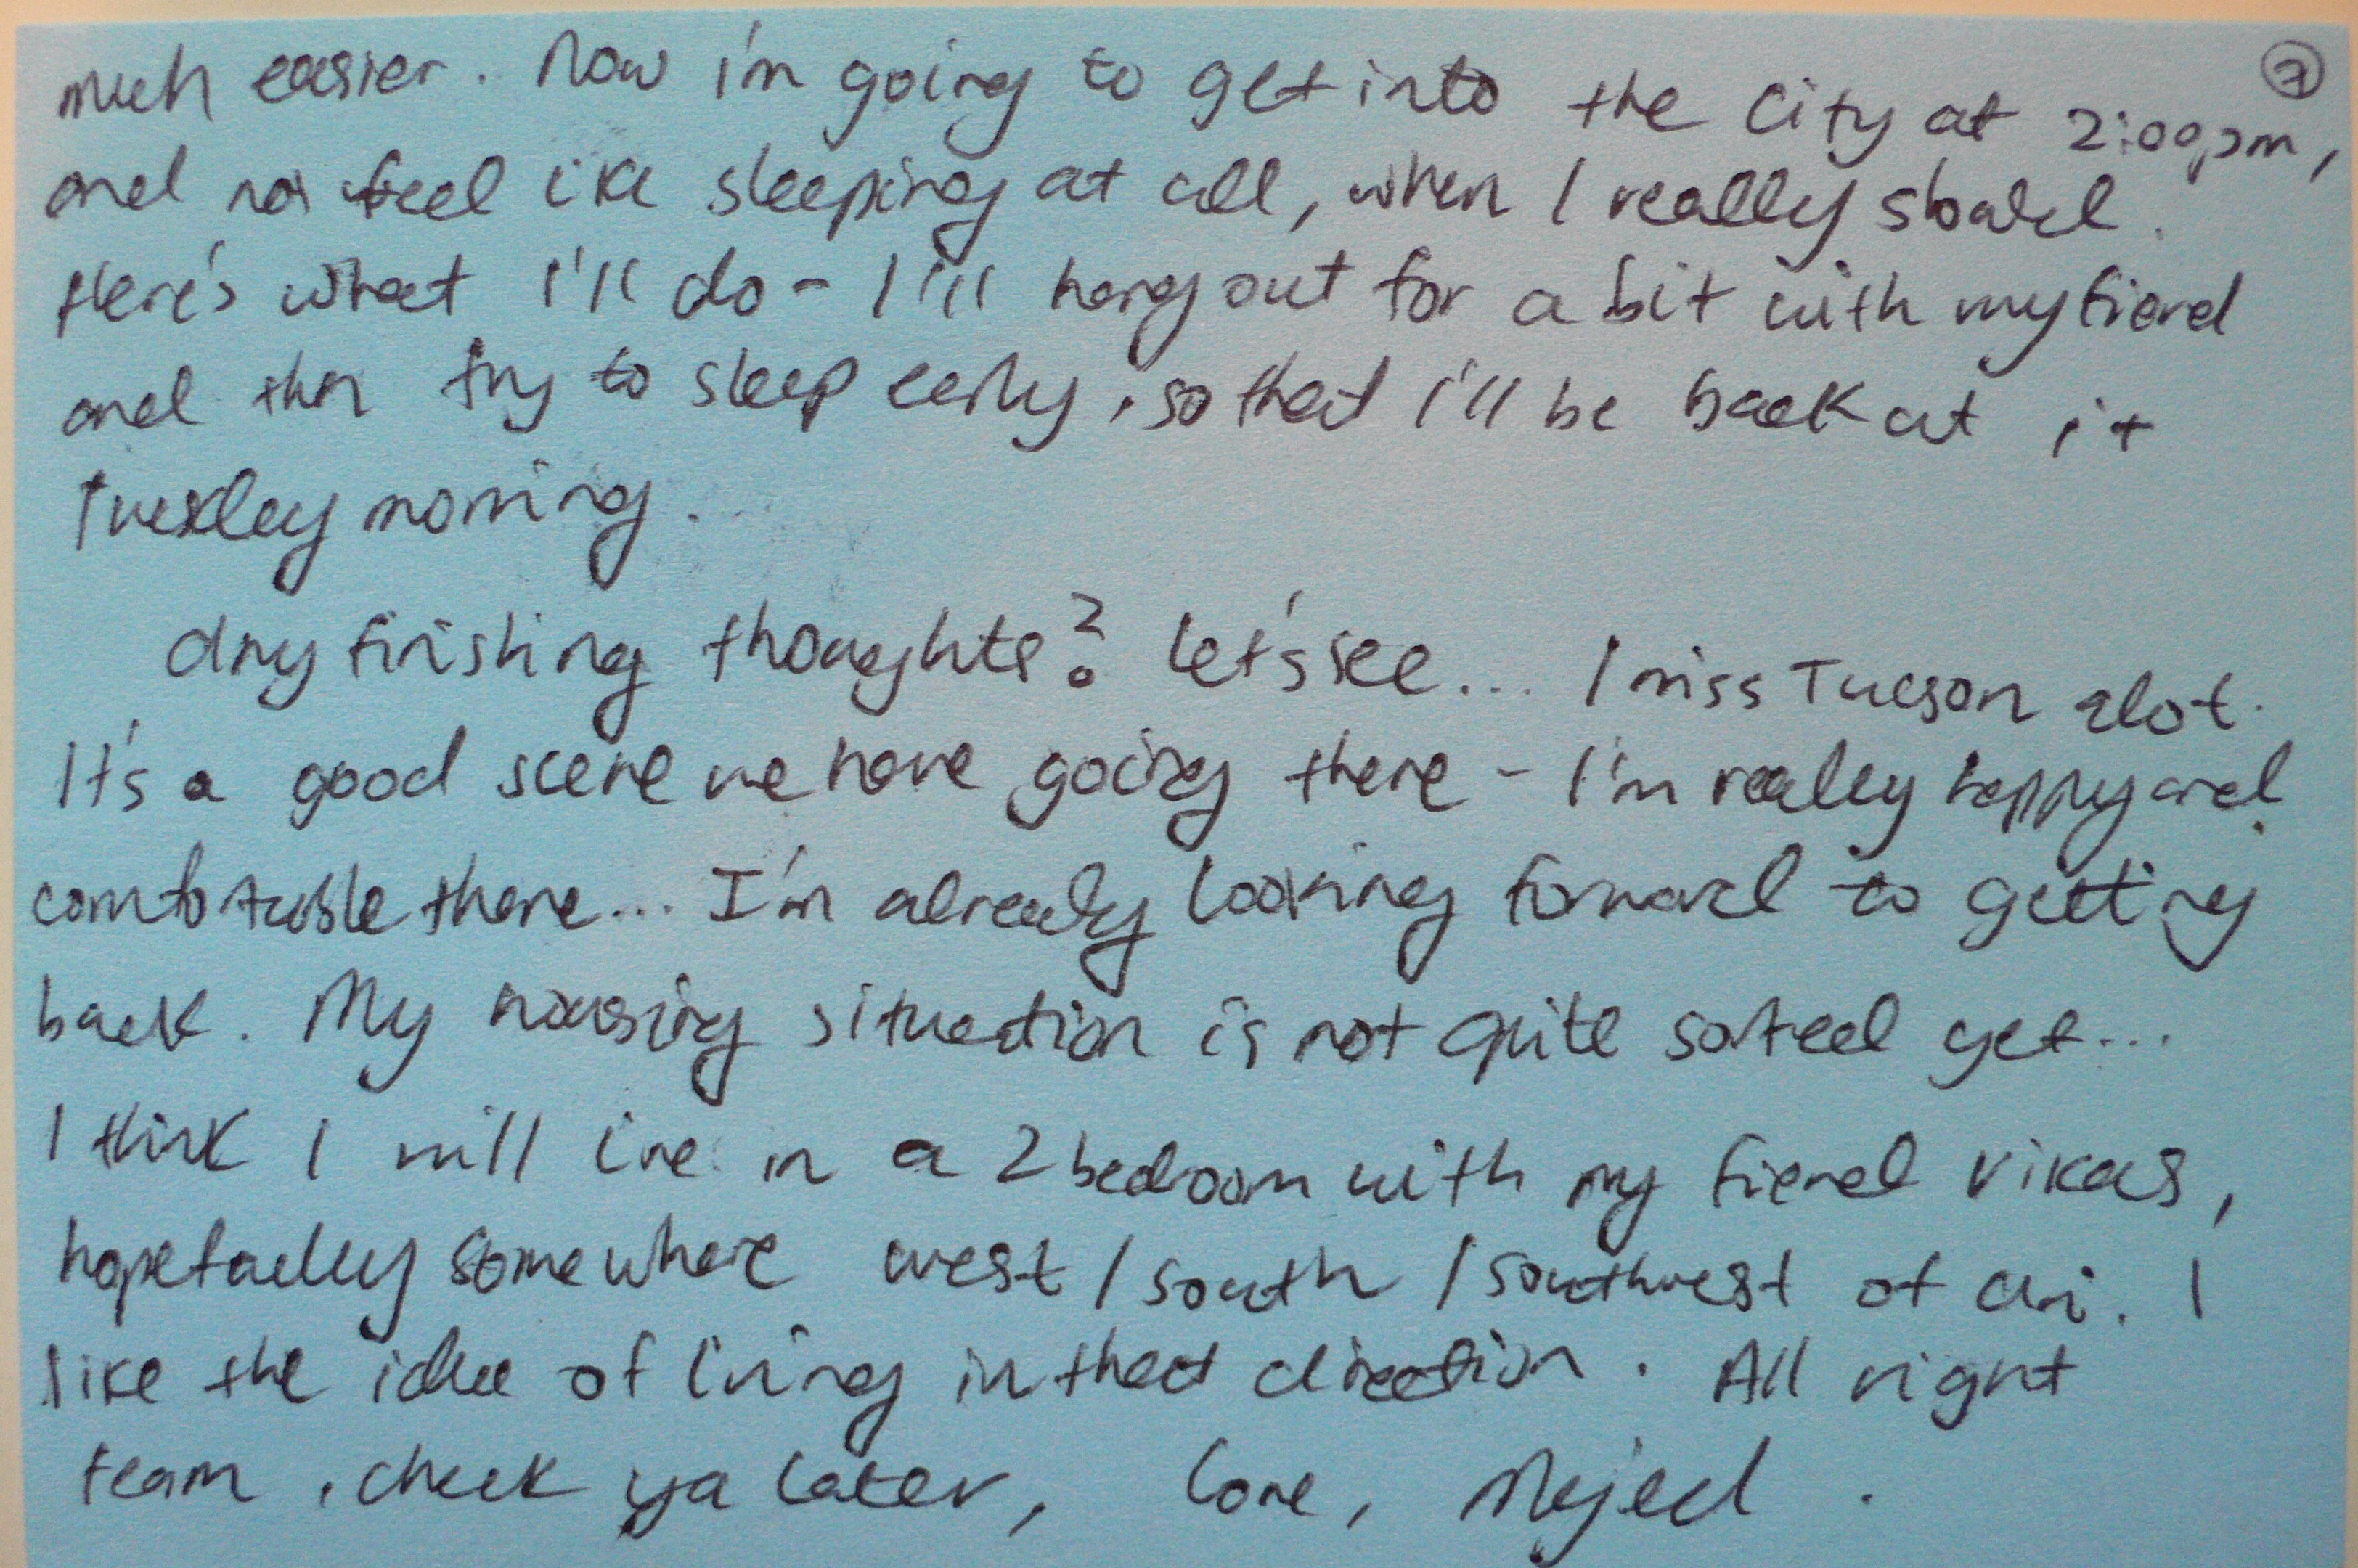 ⑦
much easier. Now i'm going to get into the city at 2:00pm,
and not feel like sleeping at all, when I really should.
Here's what I'll do - I'll hang out for a bit with my friend
and then try to sleep early, so that i'll be back at it
tuesday morning.
Any finishing thoughts? Let's see... I miss Tucson alot.
It's a good scene we have going there - I'm really happy and
comfortable there... I'm already looking forward to getting
back. My housing situation is not quite sorted yet...
I think I will live in a 2 bedroom with my friend vikas,
hopefully somewhere west / south / southwest of . I
like the idea of living in that direction. All right
team, check ya later, love, Mejed.